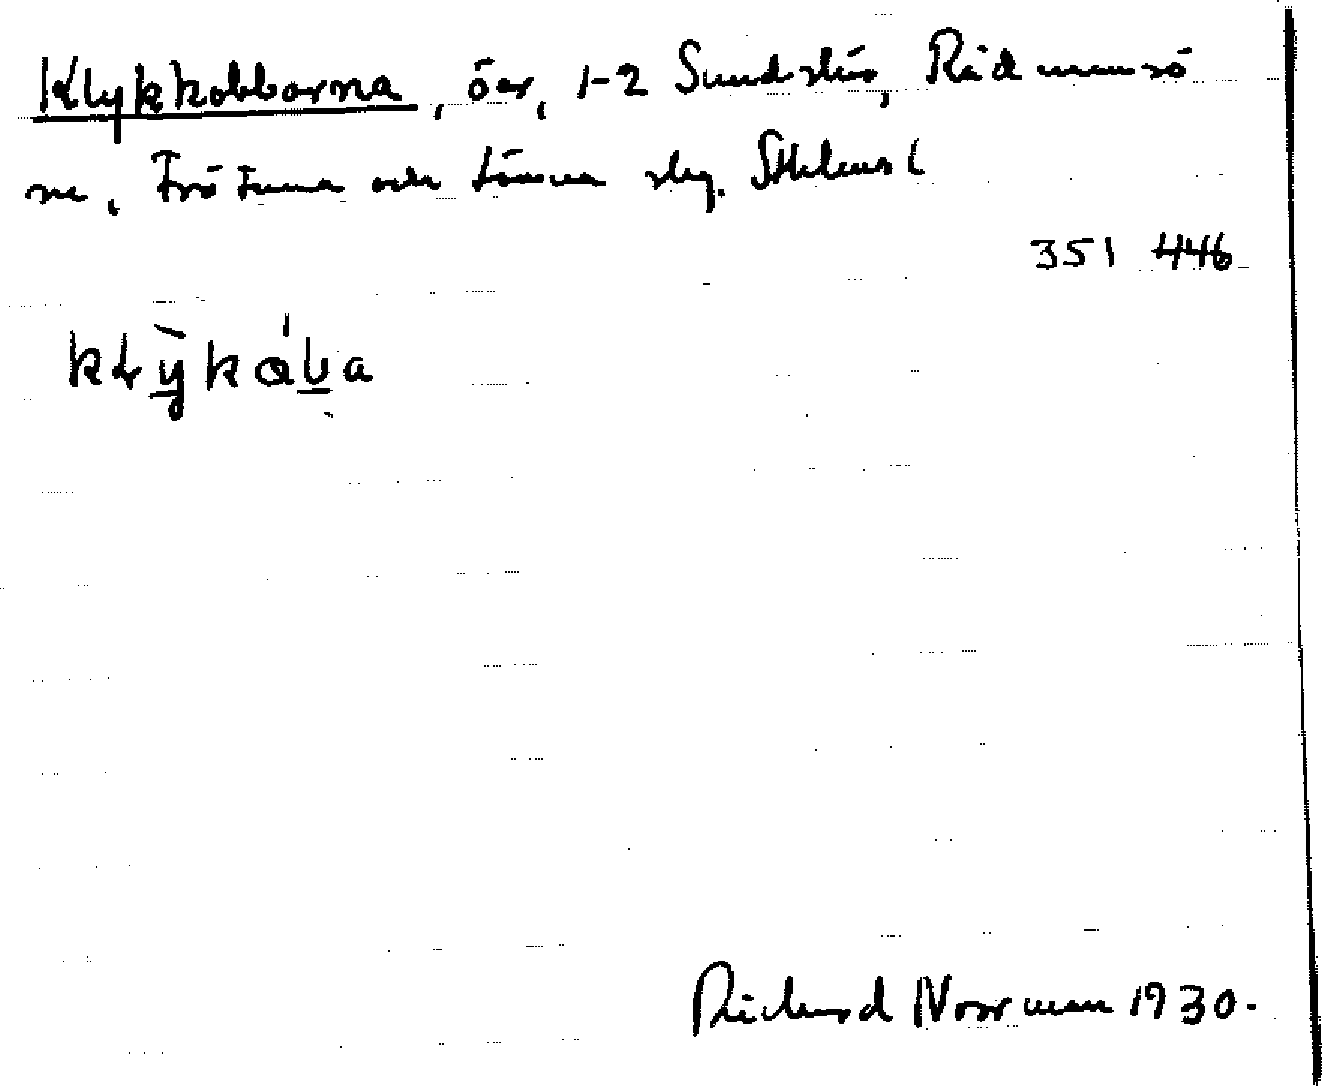 Klykkobbarna, öar, 1-2 Sundskär, Rådmansö
sn, Frötuna och Länna skg. Sthlms l
351 446
klỳkȧ́ba
Richard Norrman 1930.